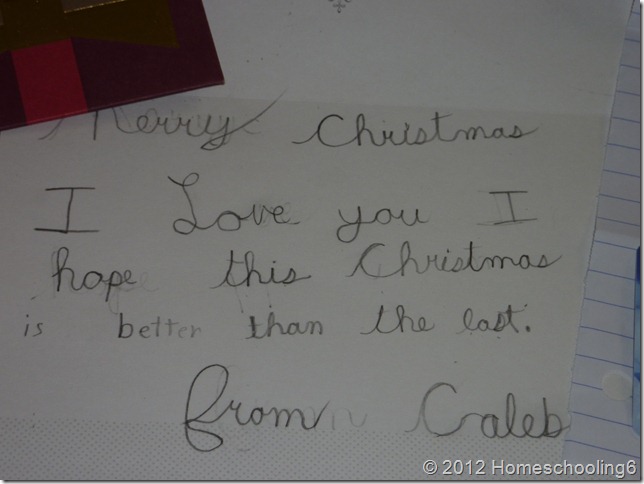 Merry Christmas
I Love you I
hope this Christmas
is better than the last.
from Caleb
© 2012 Homeschooling6